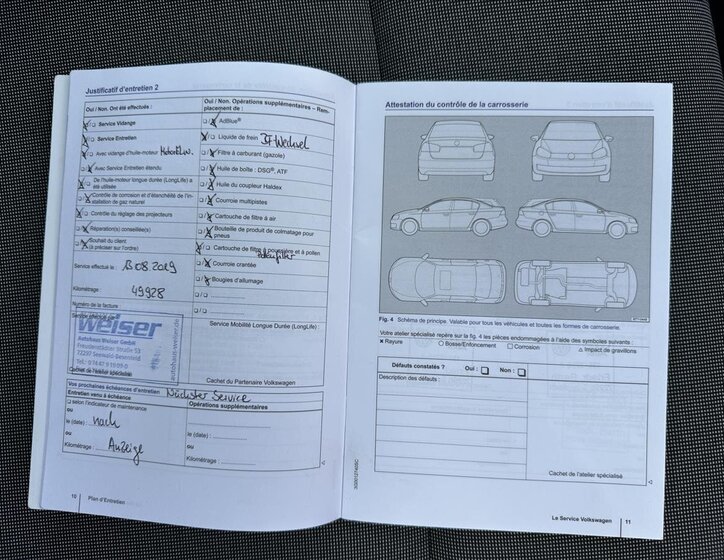 Justificatif d'entretien 2
Oui / Non. Ont été effectués :
Service Vidange
Service Entretien
Avec vidange d'huile-moteur
Avec Service Entretien étendu
De l'huile-moteur longue durée (LongLife) a
été utilisée
Contrôle de corrosion et d'étanchéité de l'in-
stallation de gaz naturel
Contrôle du réglage des projecteurs
Réparation(s) conseillée(s)
Souhait du client
(à préciser sur l'ordre)
Service effectué le : 13.08.2019
Kilométrage : 49928
Numéro de la facture
Service effectué par
weiser
Autohaus Weiser GmbH
Freudenstädter Straße 53
72297 Seewald-Besenfeld
autohaus-weiser.de
Cachet de l'atelier spécialisé
Oui / Non. Opérations supplémentaires – Rem-
placement de :
AdBlue®
Liquide de frein BF Wechsel
Filtre à carburant (gazole)
Huile de boîte : DSG®, ATF
Huile du coupleur Haldex
Courroie multipistes
Cartouche de filtre à air
Bouteille de produit de colmatage pour
pneus
Cartouche de filtre à poussière et à pollen
Courroie crantée
Bougies d'allumage
Service Mobilité Longue Durée (LongLife) :
Cachet du Partenaire Volkswagen
Vos prochaines échéances d'entretien Nächster Service
Entretien venu à échéance
selon l'indicateur de maintenance
ou
le (date) : nach
ou
Kilométrage : Anzeige
Opérations supplémentaires
le (date) :
ou
Kilométrage :
10 Plan d'Entretien
Attestation du contrôle de la carrosserie
Fig. 4 Schéma de principe. Valable pour tous les véhicules et toutes les formes de carrosserie.
Votre atelier spécialisé repère sur la fig. 4 les pièces endommagées à l'aide des symboles suivants :
× Rayure ○ Bosse/Enfoncement □ Corrosion △ Impact de gravillons
Défauts constatés ? Oui : Non :
Description des défauts :
Cachet de l'atelier spécialisé
Le Service Volkswagen 11